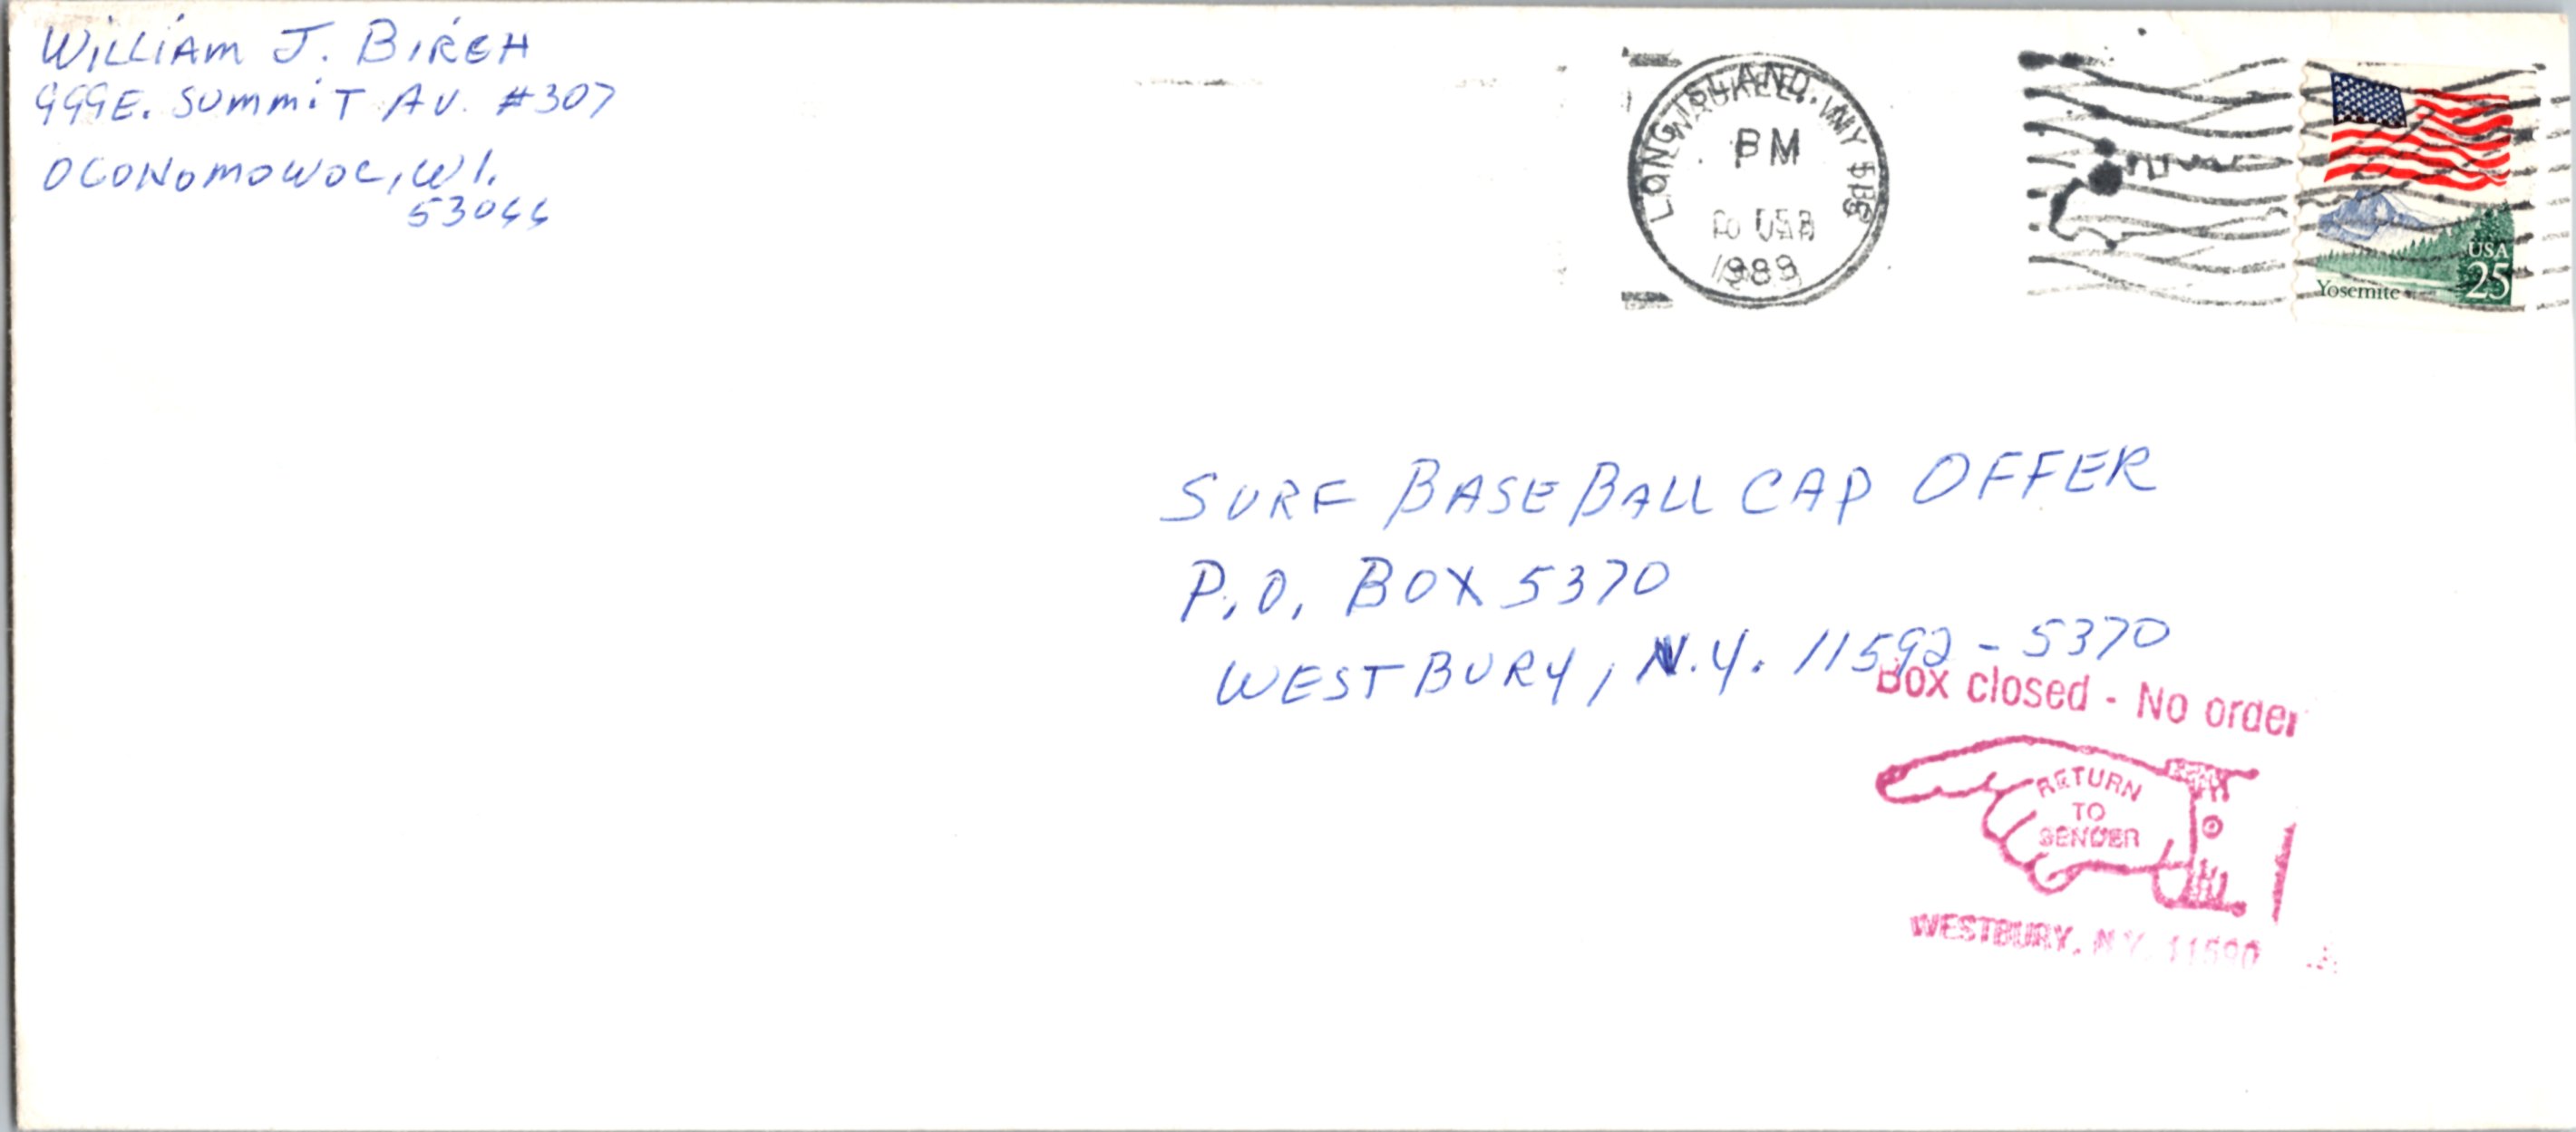 WILLIAM J. BIRCH
999E. SUMMIT AV. #307
OCONOMOWOC, WI.
53066
LONG ISLAND, NY
PM
1989
USA
25
Yosemite
SURF BASEBALL CAP OFFER
P.O. BOX 5370
WESTBURY, N.Y. 11592-5370
Box closed - No order
RETURN
TO
SENDER
WESTBURY, N.Y. 11590